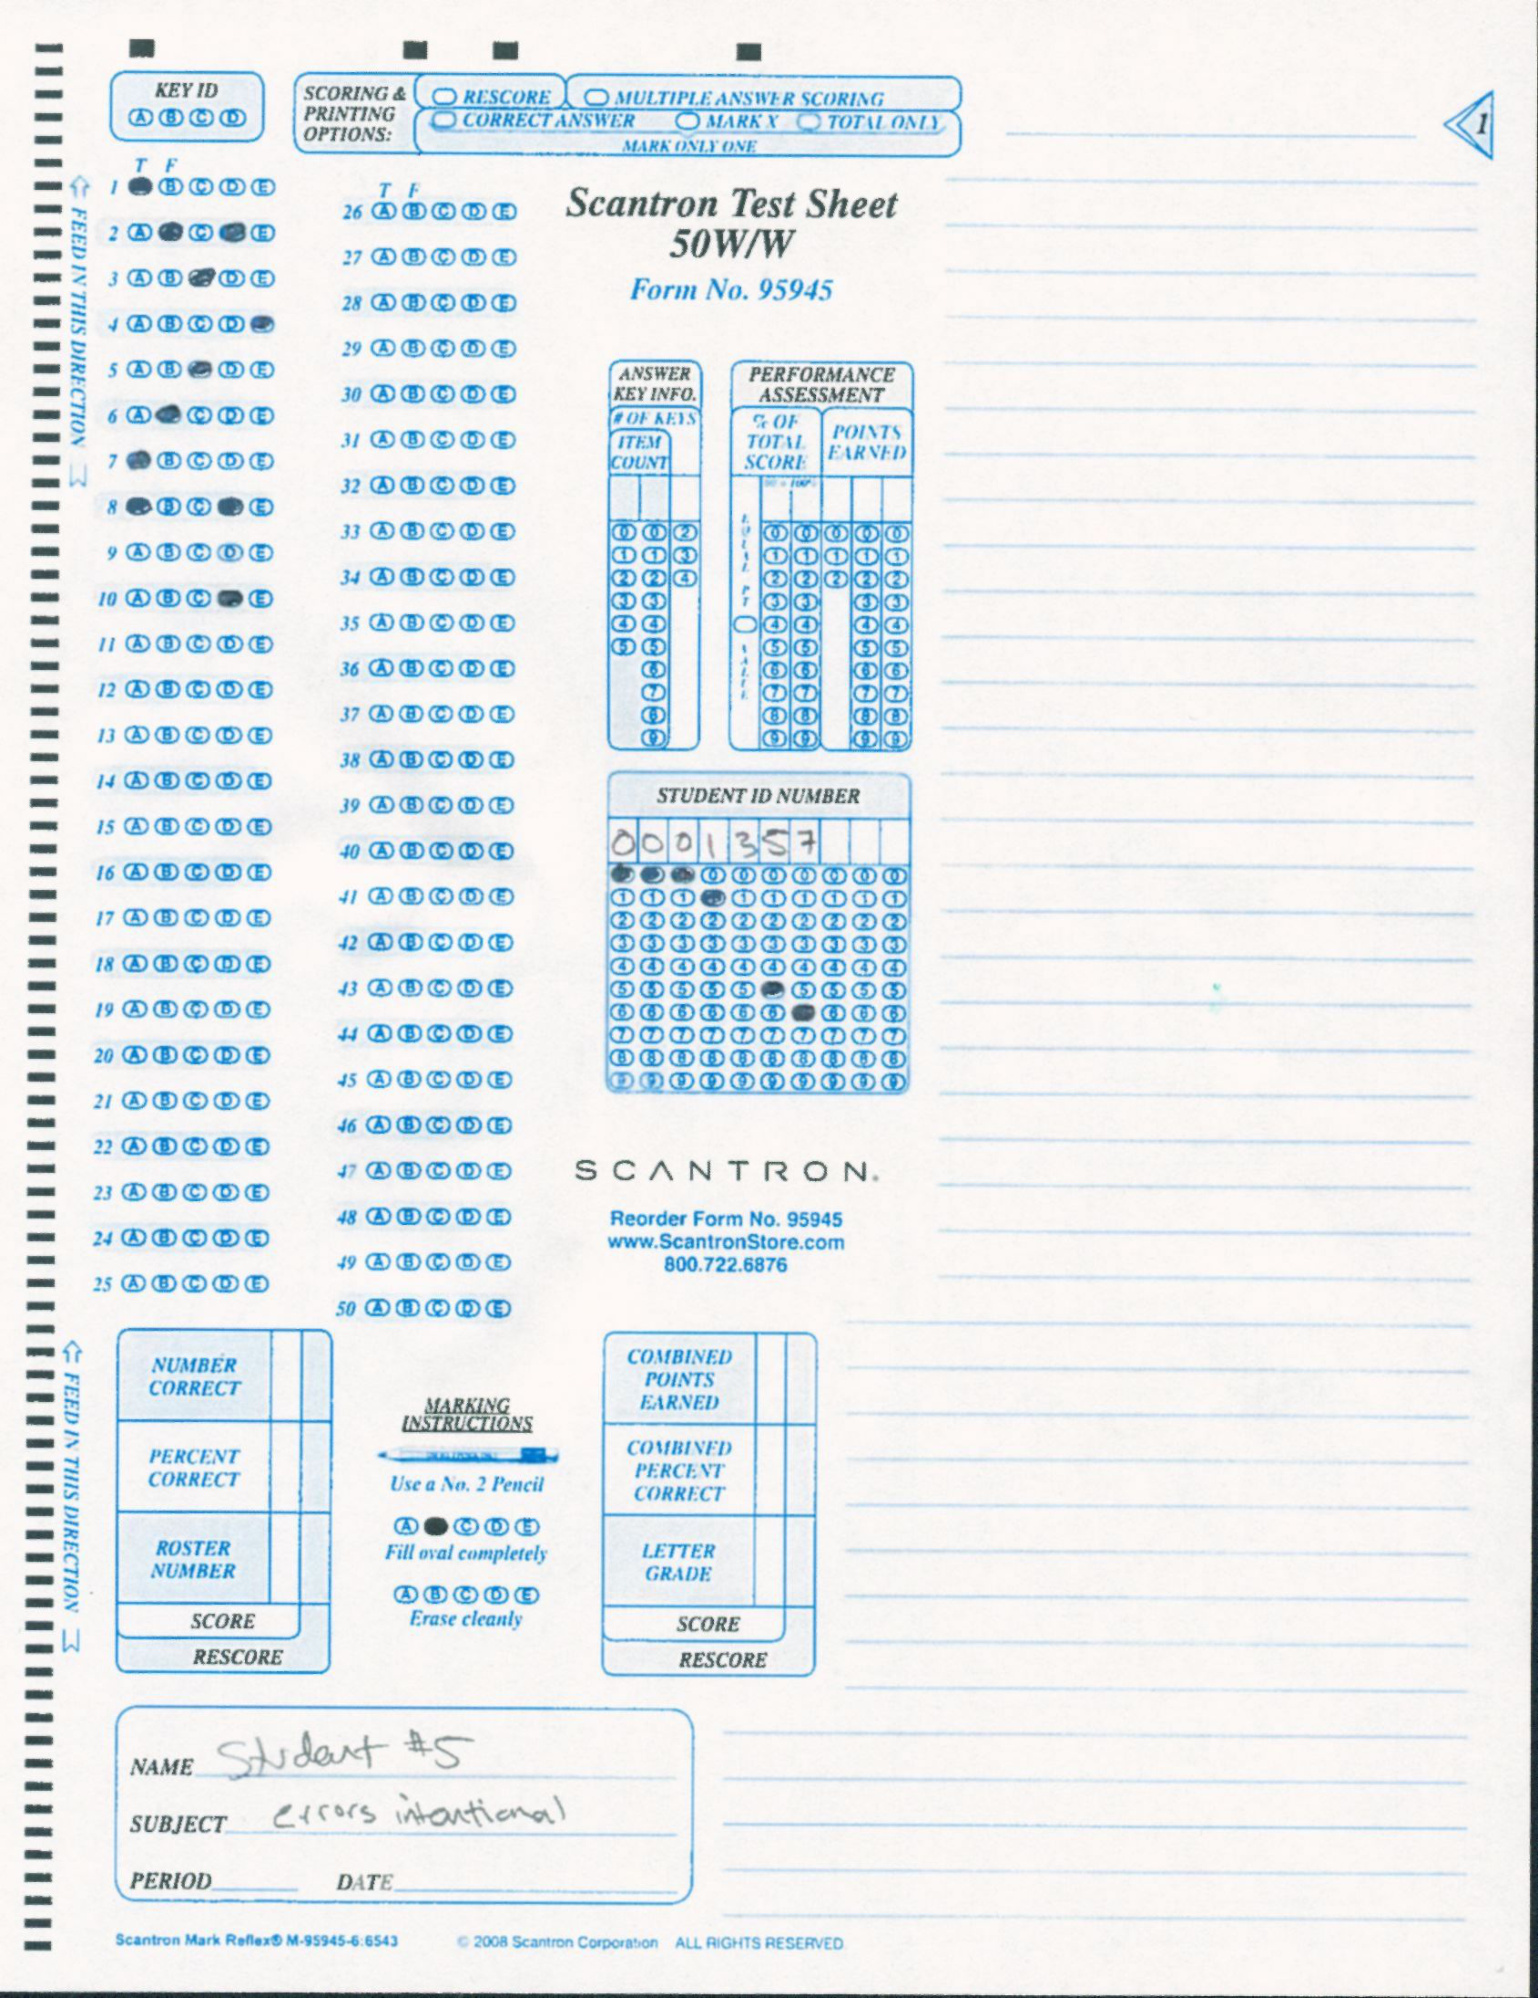 KEY ID
A B C D
SCORING & PRINTING OPTIONS:
RESCORE MULTIPLE ANSWER SCORING
CORRECT ANSWER MARK X TOTAL ONLY
MARK ONLY ONE
1
FEED IN THIS DIRECTION
T F
1 B C D E
2 A C E
3 A B D E
4 A B C D
5 A B D E
6 A C D E
7 B C D E
8 B C E
9 A B C D E
10 A B C E
11 A B C D E
12 A B C D E
13 A B C D E
14 A B C D E
15 A B C D E
16 A B C D E
17 A B C D E
18 A B C D E
19 A B C D E
20 A B C D E
21 A B C D E
22 A B C D E
23 A B C D E
24 A B C D E
25 A B C D E
T F
26 A B C D E
27 A B C D E
28 A B C D E
29 A B C D E
30 A B C D E
31 A B C D E
32 A B C D E
33 A B C D E
34 A B C D E
35 A B C D E
36 A B C D E
37 A B C D E
38 A B C D E
39 A B C D E
40 A B C D E
41 A B C D E
42 A B C D E
43 A B C D E
44 A B C D E
45 A B C D E
46 A B C D E
47 A B C D E
48 A B C D E
49 A B C D E
50 A B C D E
Scantron Test Sheet
50W/W
Form No. 95945
ANSWER
KEY INFO.
# OF KEYS
ITEM
COUNT
0 0 2
1 1 3
2 2 4
3 3
4 4
5 5
6
7
8
9
PERFORMANCE
ASSESSMENT
% OF
TOTAL
SCORE
POINTS
EARNED
00 = 100%
EQUAL PT VALUE
0 0 0 0 0
1 1 1 1 1
2 2 2 2 2
3 3 3 3
4 4 4 4
5 5 5 5
6 6 6 6
7 7 7 7
8 8 8 8
9 9 9 9
STUDENT ID NUMBER
0 0 0 1 3 5 7
0 0 0 0 0 0 0
1 1 1 1 1 1 1 1 1
2 2 2 2 2 2 2 2 2 2
3 3 3 3 3 3 3 3 3 3
4 4 4 4 4 4 4 4 4 4
5 5 5 5 5 5 5 5 5
6 6 6 6 6 6 6 6 6
7 7 7 7 7 7 7 7 7 7
8 8 8 8 8 8 8 8 8 8
9 9 9 9 9 9 9 9 9 9
SCANTRON.
Reorder Form No. 95945
www.ScantronStore.com
800.722.6876
FEED IN THIS DIRECTION
NUMBER
CORRECT
PERCENT
CORRECT
ROSTER
NUMBER
SCORE
RESCORE
MARKING
INSTRUCTIONS
Use a No. 2 Pencil
A C D E
Fill oval completely
A B C D E
Erase cleanly
COMBINED
POINTS
EARNED
COMBINED
PERCENT
CORRECT
LETTER
GRADE
SCORE
RESCORE
NAME Student #5
SUBJECT errors intentional
PERIOD DATE
Scantron Mark Reflex® M-95945-6:6543 © 2008 Scantron Corporation ALL RIGHTS RESERVED